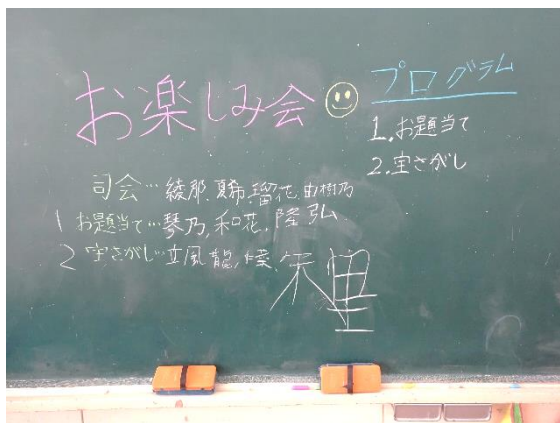 お楽しみ会
プログラム
1. お題当て
2. 宝さがし
司会…綾那、夏希、瑠花、由樹乃
1 お題当て…琴乃、和花、陸、弘
2 宝さがし…立風、龍、陸、朱里